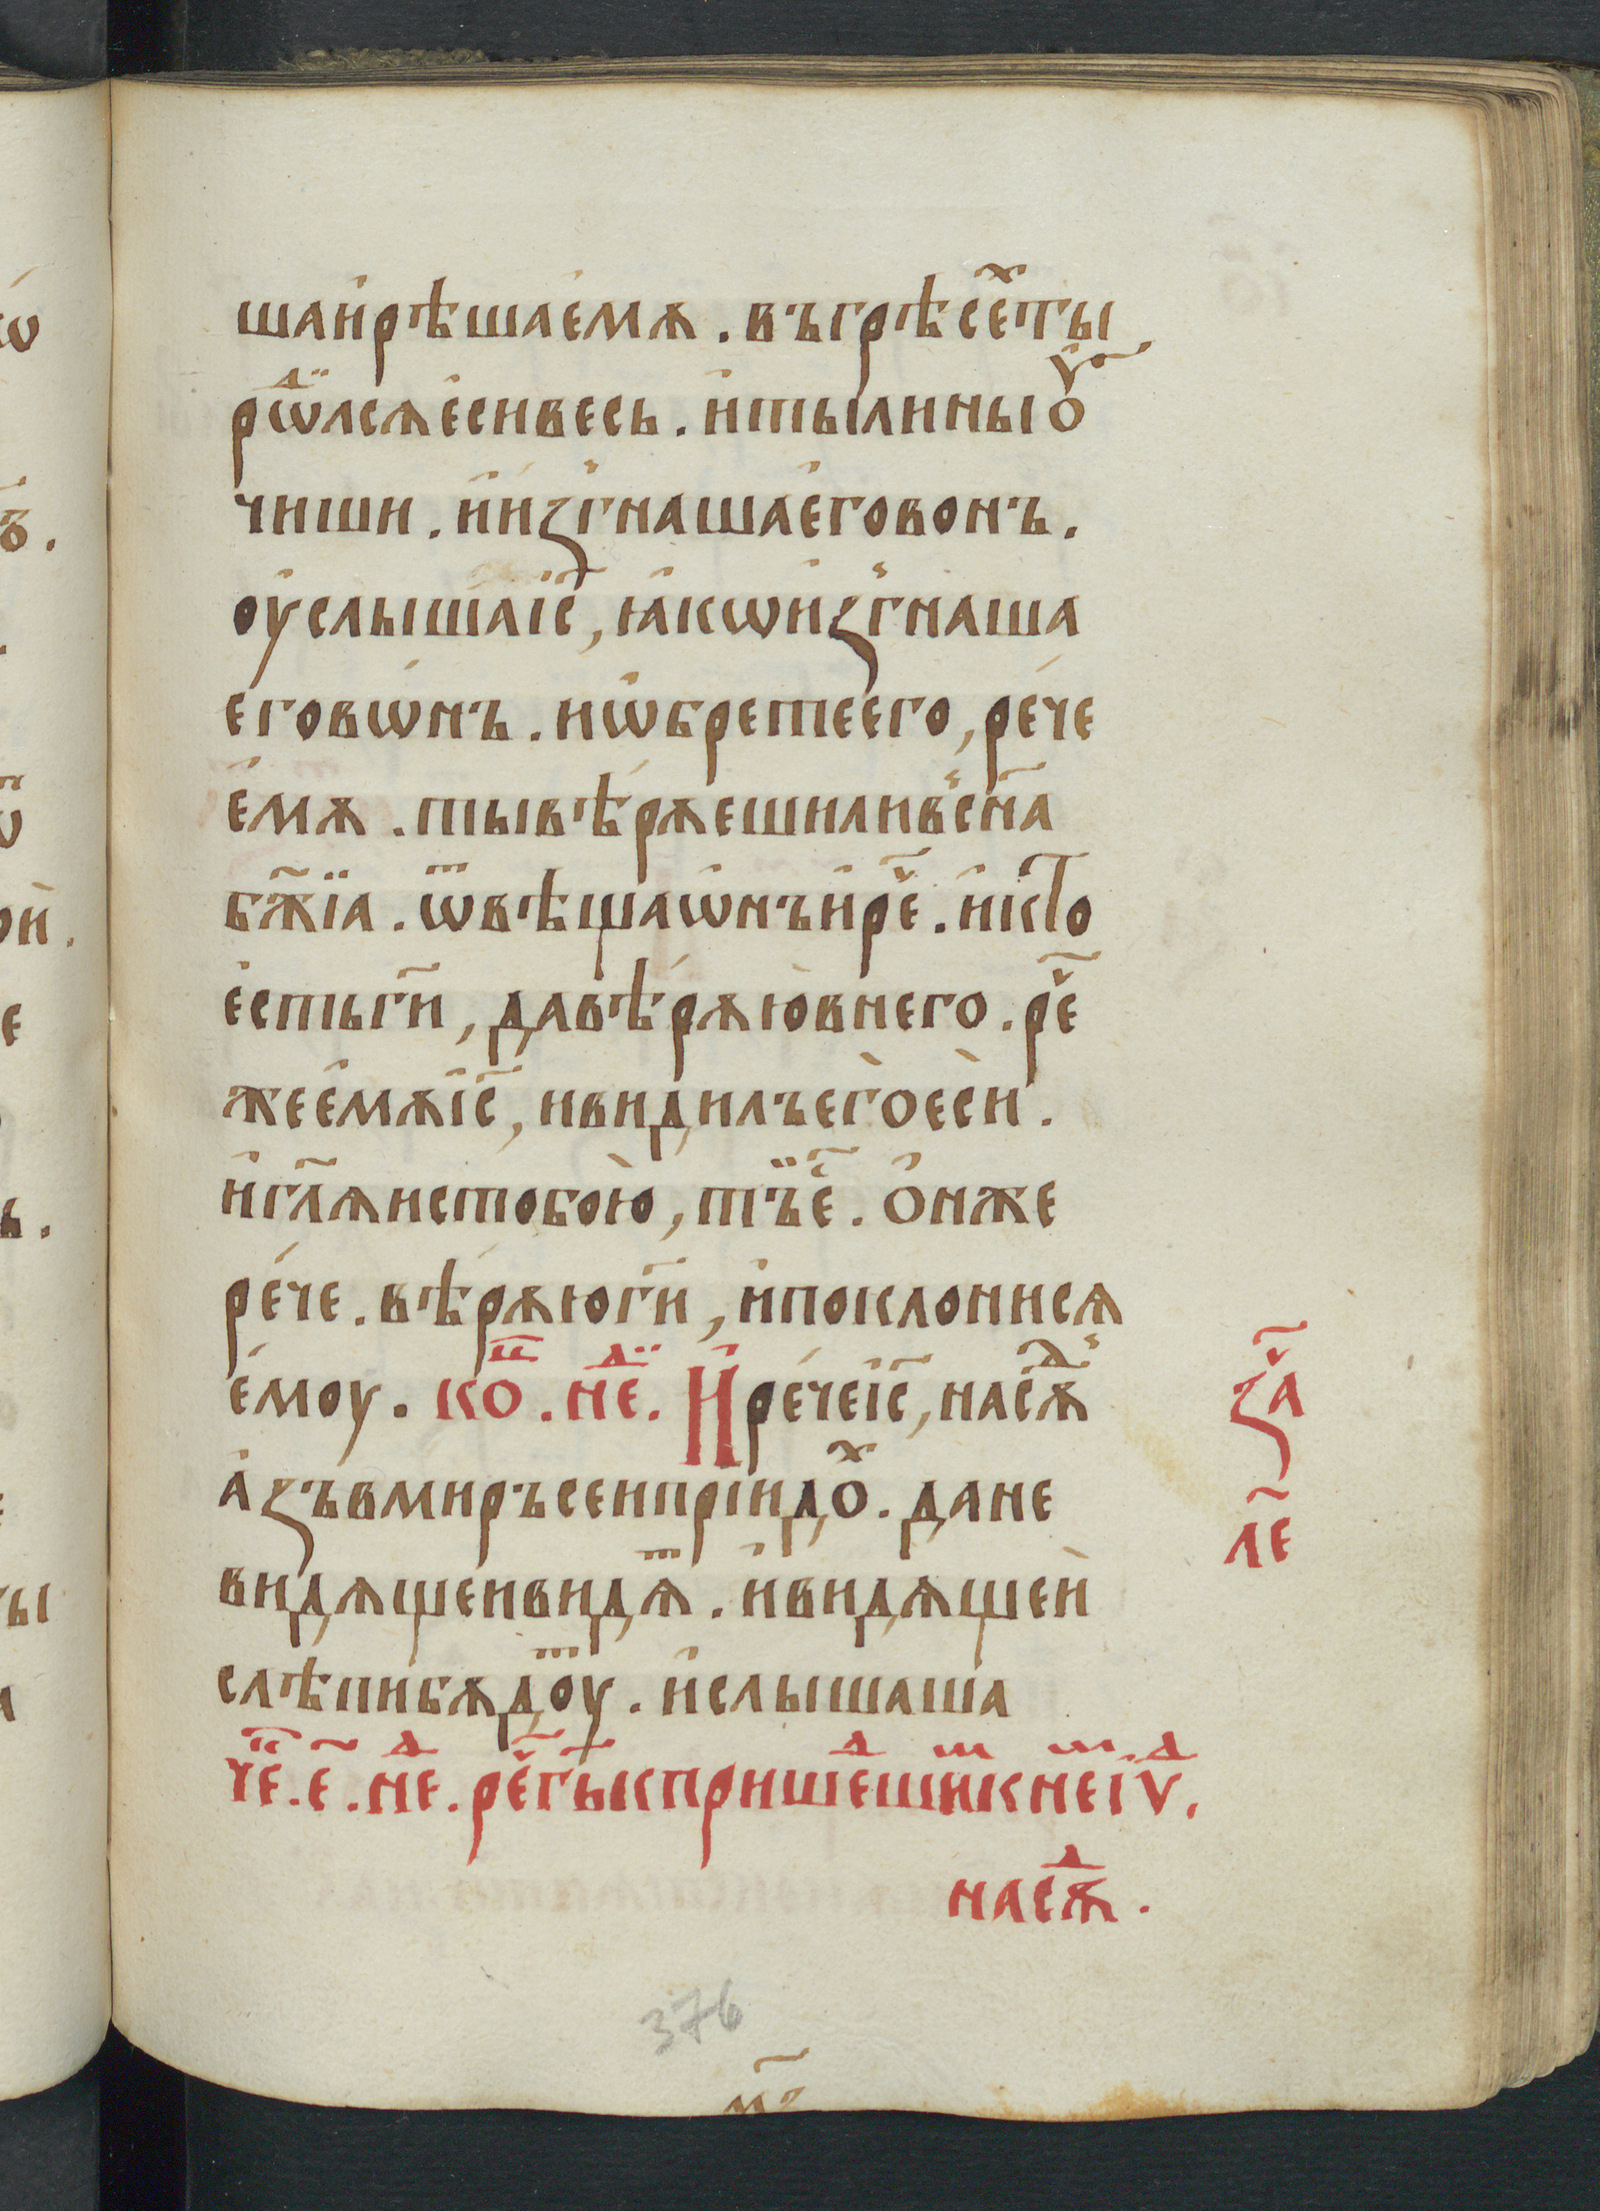 шаи҆рѣшае҆мѫ . въгрѣсе҆ⷯ҇ты
рѡⷣ҇лсѧе҆сивесь . и҆тылиныо҆ѵⷪ҇
чиши . и҆и҆зⸯгнашае҆говонъ .
оу҆слышаі҆с҃ , ꙗ҆кѡи҆зⸯгнаша
еговѡ́нъ . иѡ҆бретеего , ре́че
е҆мѫ . тывѣ́рѫешиливⸯсн҃а
бж҃їа . ѿвѣщаѡ҆нъи҆рече҃ . и҆кто
е҆стьги҃ , давѣ́рѫю̀внего . рече҃
жее҆мѫі҆с҃ , ивидилъего̀есѝ .
и҆гл҃ѧистобою̀ , тъ̈е҃с . О҆нже
ре́че . вѣ́рѫюги҃ , и҆поклонисѧ
е҆моу . коⷰ҇ . неⷣ҇ . И҆ре́чеі҆с҃ , насѫⷣ҇ⸯ
а҆зъвмиръсеипрїи҆доⷯ҇ . дане
видѧщеивидѧⷮ҇ . и҆видѧщеѝ
слѣпибѫдоуⷮ҇ . и҆слышаша
чеⷰ҇ . е҃ . неⷣ҇ . рече҃гⷭ҇ькпришеⷣ҇шиⷨ҇кнеⷨ҇і҆ѵⷣ҇ .
насѫⷣ҇ .
зач҃
ле҃
376